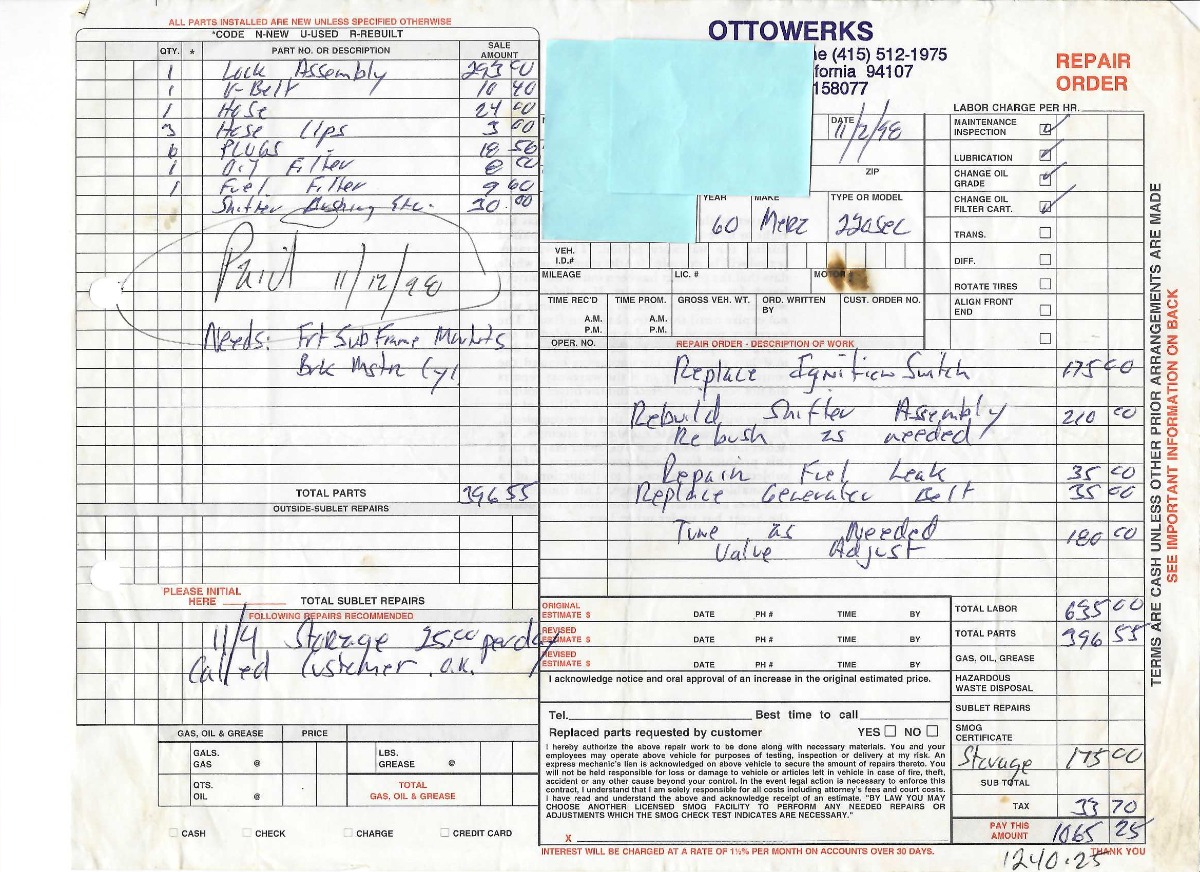 ALL PARTS INSTALLED ARE NEW UNLESS SPECIFIED OTHERWISE
*CODE N-NEW U-USED R-REBUILT
QTY. * PART NO. OR DESCRIPTION SALE AMOUNT
1 Lock Assembly 293 00
1 V-Belt 10 40
1 Hose 24 00
3 Hose Clps 3 00
6 PLUGS 18 50
1 Oil Filter 8 00
1 Fuel Filter 9 60
Shifter Bushing Etc. 30.00
Paid 11/12/98
Needs: Frt Sub Frame Mounts
Brk Mstr Cyl
TOTAL PARTS 396 55
OUTSIDE-SUBLET REPAIRS
PLEASE INITIAL HERE
TOTAL SUBLET REPAIRS
FOLLOWING REPAIRS RECOMMENDED
11/4 Storage 25.00 per day
Called Customer O.K.
GAS, OIL & GREASE PRICE
GALS. GAS @
LBS. GREASE @
QTS. OIL @
TOTAL GAS, OIL & GREASE
CASH CHECK CHARGE CREDIT CARD
OTTOWERKS
ne (415) 512-1975
fornia 94107
158077
REPAIR ORDER
DATE 11/2/98
ZIP
YEAR MAKE TYPE OR MODEL
60 Merz 220SEC
VEH. I.D.#
MILEAGE LIC. # MOTOR
TIME REC'D TIME PROM. GROSS VEH. WT. ORD. WRITTEN BY CUST. ORDER NO.
A.M. A.M.
P.M. P.M.
LABOR CHARGE PER HR.
MAINTENANCE INSPECTION
LUBRICATION
CHANGE OIL GRADE
CHANGE OIL FILTER CART.
TRANS.
DIFF.
ROTATE TIRES
ALIGN FRONT END
OPER. NO. REPAIR ORDER - DESCRIPTION OF WORK
Replace Ignition Switch 175 00
Rebuild Shifter Assembly 210 00
Rebush as needed
Repair Fuel Leak 35 00
Replace Generator Belt 35 00
Tune as Needed 180 00
Valve Adjust
ORIGINAL ESTIMATE $ DATE PH # TIME BY
REVISED ESTIMATE $ DATE PH # TIME BY
REVISED ESTIMATE $ DATE PH # TIME BY
I acknowledge notice and oral approval of an increase in the original estimated price.
Tel. Best time to call
Replaced parts requested by customer YES NO
I hereby authorize the above repair work to be done along with necessary materials. You and your
employees may operate above vehicle for purposes of testing, inspection or delivery at my risk. An
express mechanic's lien is acknowledged on above vehicle to secure the amount of repairs thereto. You
will not be held responsible for loss or damage to vehicle or articles left in vehicle in case of fire, theft,
accident or any other cause beyond your control. In the event legal action is necessary to enforce this
contract, I understand that I am solely responsible for all costs including attorney's fees and court costs.
I have read and understand the above and acknowledge receipt of an estimate. "BY LAW YOU MAY
CHOOSE ANOTHER LICENSED SMOG FACILITY TO PERFORM ANY NEEDED REPAIRS OR
ADJUSTMENTS WHICH THE SMOG CHECK TEST INDICATES ARE NECESSARY."
X
INTEREST WILL BE CHARGED AT A RATE OF 1½% PER MONTH ON ACCOUNTS OVER 30 DAYS.
TOTAL LABOR 635 00
TOTAL PARTS 396 55
GAS, OIL, GREASE
HAZARDOUS WASTE DISPOSAL
SUBLET REPAIRS
SMOG CERTIFICATE
Storage 175 00
SUB TOTAL
TAX 33 70
PAY THIS AMOUNT 1065 25
THANK YOU
1240.25
TERMS ARE CASH UNLESS OTHER PRIOR ARRANGEMENTS ARE MADE
SEE IMPORTANT INFORMATION ON BACK